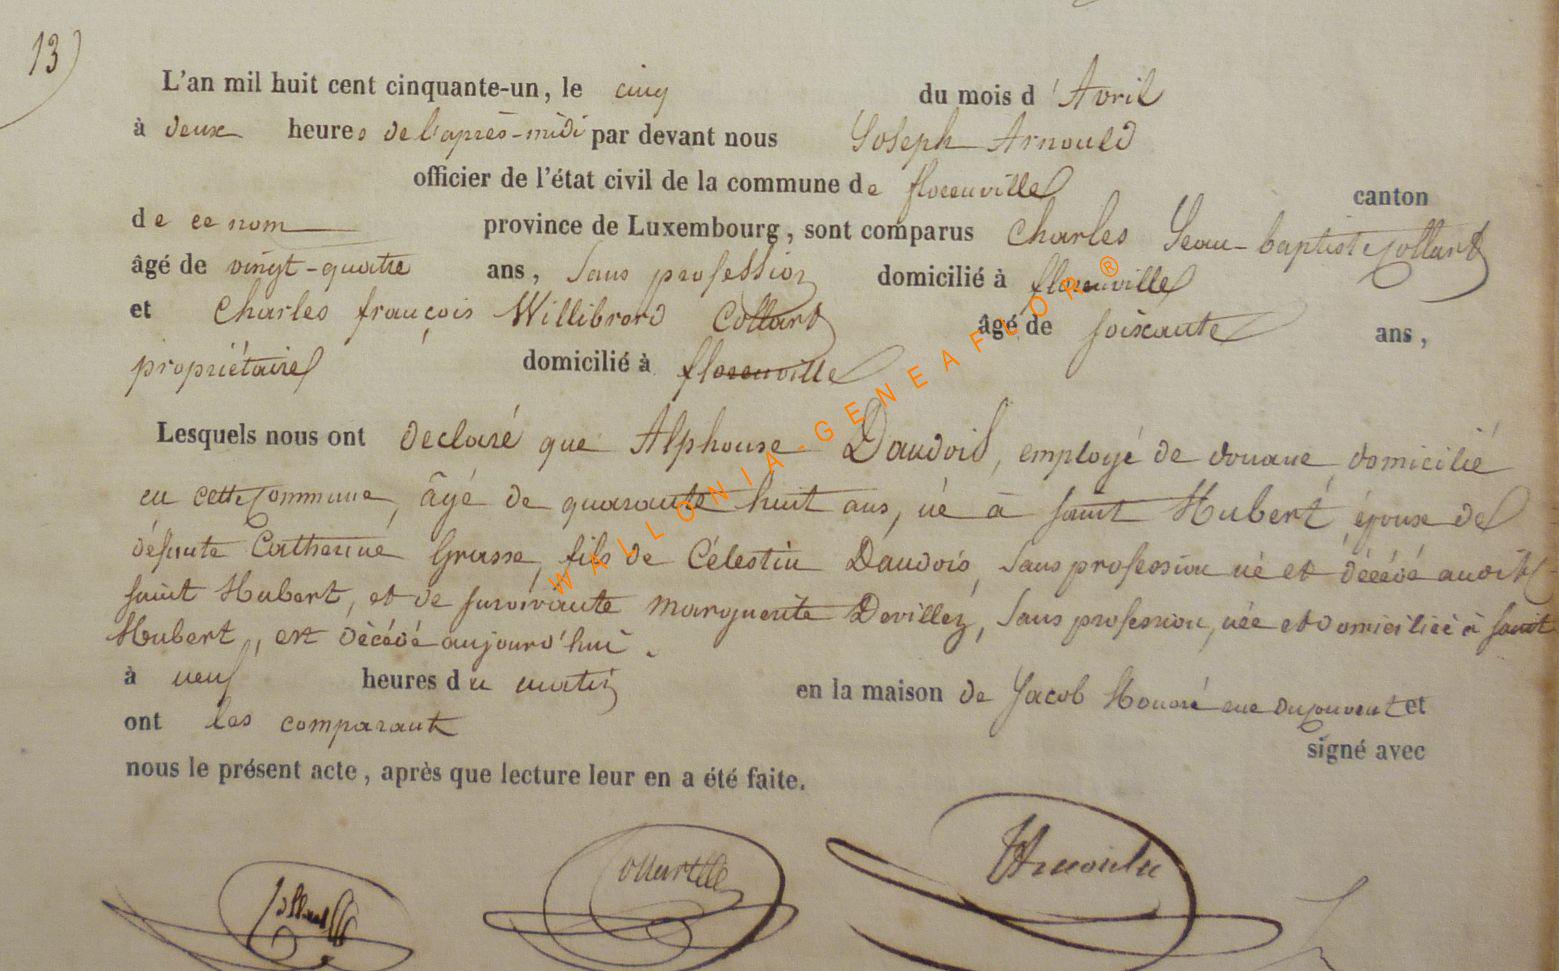 13)
L'an mil huit cent cinquante-un, le cinq du mois d'Avril
à deux heures de l'après-midi par devant nous Joseph Arnould
officier de l'état civil de la commune de florenville canton
de ce nom province de Luxembourg, sont comparus Charles Jean-baptiste Collart
âgé de vingt-quatre ans, sans profession domicilié à florenville
et Charles françois Willibrord Collart âgé de soixante ans,
propriétaire domicilié à florenville
Lesquels nous ont declaré que Alphonse Daudois, employé de douane, domicilié
en cette Commune, âgé de quarante huit ans, né à saint Hubert, époux de
défunte Catherine Grasse, fils de Célestin Daudois, sans profession né et décédé audit
saint Hubert, et de survivante Marguerite Devillez, sans profession, née et domiciliée à saint
Hubert, est décédé aujourd'hui.
à neuf heures du matin en la maison de Jacob Honoré rue du couvent et
ont les comparants signé avec
nous le présent acte, après que lecture leur en a été faite.
Collart
JArnould
WALLONIA-GENEAFLOR®